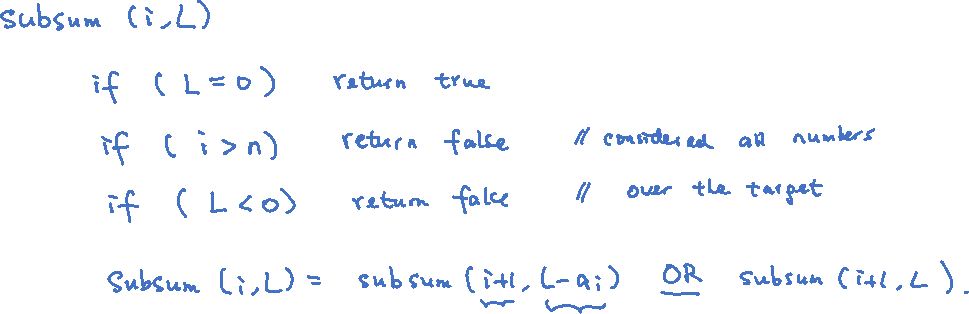 Subsum (i, L)
if (L = 0) return true
if (i > n) return false // considered all numbers
if (L < 0) return false // over the target
Subsum (i, L) = subsum (i+1, L-aᵢ) OR subsum (i+1, L).